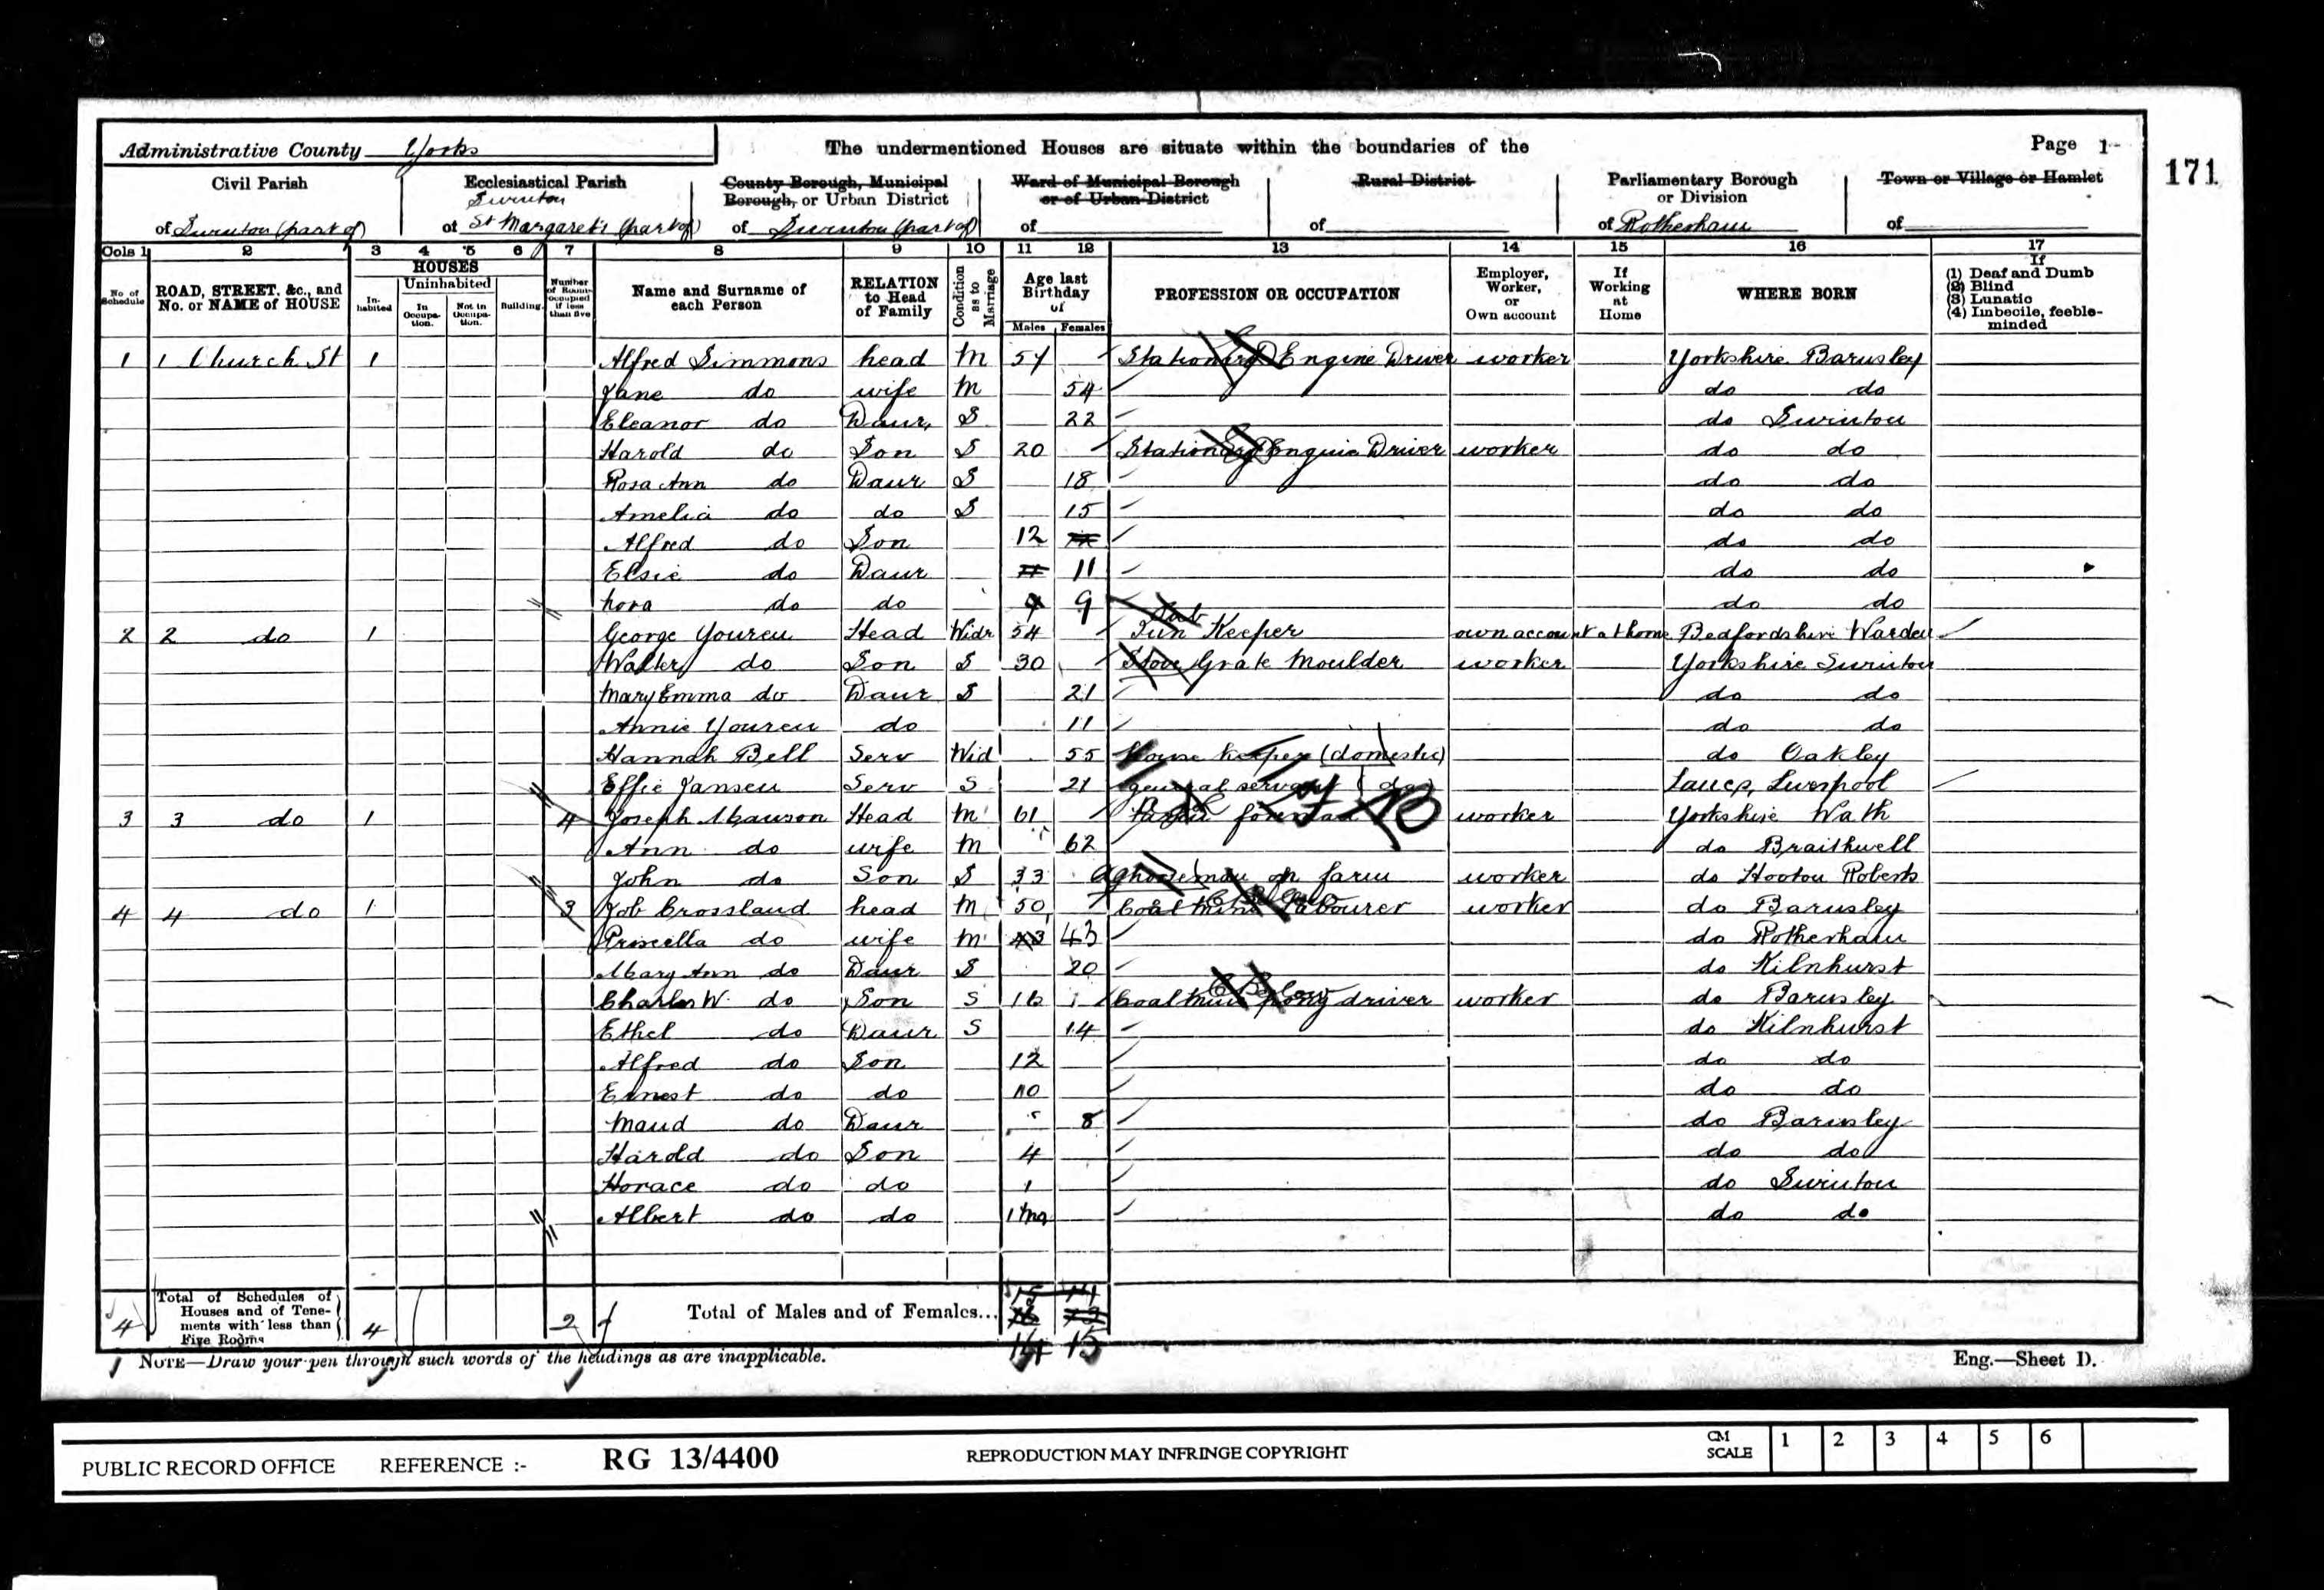 Administrative County Yorks
The undermentioned Houses are situate within the boundaries of the
Page 1
171
Civil Parish of Swinton (part of)
Ecclesiastical Parish of Swinton St Margaret's (part of)
County Borough, Municipal Borough, or Urban District of Swinton (part of)
Ward of Municipal Borough or of Urban District of
Rural District of
Parliamentary Borough or Division of Rotherham
Town or Village or Hamlet of
Cols 1 2 3 4 5 6 7 8 9 10 11 12 13 14 15 16 17
No of Schedule
ROAD, STREET, &c., and No. or NAME of HOUSE
HOUSES
Inhabited
Uninhabited
In Occupation.
Not in Occupation.
Building.
Number of Rooms occupied if less than five
Name and Surname of each Person
RELATION to Head of Family
Condition as to Marriage
Age last Birthday of
Males Females
PROFESSION OR OCCUPATION
Employer, Worker, or Own account
If Working at Home
WHERE BORN
If (1) Deaf and Dumb (2) Blind (3) Lunatic (4) Imbecile, feeble-minded
1 1 Church St 1 Alfred Simmons head M Stationary Engine Driver worker Yorkshire Barnsley
Jane do wife M 54 do do
Eleanor do Daur S 22 do Swinton
Harold do Son S 20 Stationary Engine Driver worker do do
Rosa Ann do Daur S 18 do do
Amelia do do S 15 do do
Alfred do Son 12 do do
Elsie do Daur 11 do do
do do 9 do do
2 2 do 1 George Youren Head Widr 54 Inn Keeper own account at home Bedfordshire Warden
Walter do Son S 30 Stove Grate Moulder worker Yorkshire Swinton
Mary Emma do Daur S 21 do do
Annie Youren do 11 do do
Hannah Bell Serv Wid 55 House Keeper (domestic) do Oakley
Effie Jansen Serv S 21 general servant (do) Lancs, Liverpool
3 3 do 1 4 Joseph Mawson Head M 61 foreman worker Yorkshire Wath
Ann do wife M 62 do Braithwell
John do Son S 33 horseman on farm worker do Hooton Roberts
4 4 do 1 3 Job Crossland head M 50 Coal mine Labourer worker do Barnsley
Priscella do wife M 43 43 do Rotherham
Mary Ann do Daur S 20 do Kilnhurst
Charles W. do Son S 16 Coal mine pony driver worker do Barnsley
Ethel do Daur S 14 do Kilnhurst
Alfred do Son 12 do do
Ernest do do 10 do do
Maud do Daur 8 do Barnsley
Harold do Son 4 do do
Horace do do 1 do Swinton
Albert do do 1 mo do do
4 Total of Schedules of Houses and of Tenements with less than Five Rooms 4 2 Total of Males and of Females...
14 15
NOTE—Draw your pen through such words of the headings as are inapplicable.
Eng.—Sheet D.
PUBLIC RECORD OFFICE REFERENCE :- RG 13/4400 REPRODUCTION MAY INFRINGE COPYRIGHT
CM SCALE 1 2 3 4 5 6